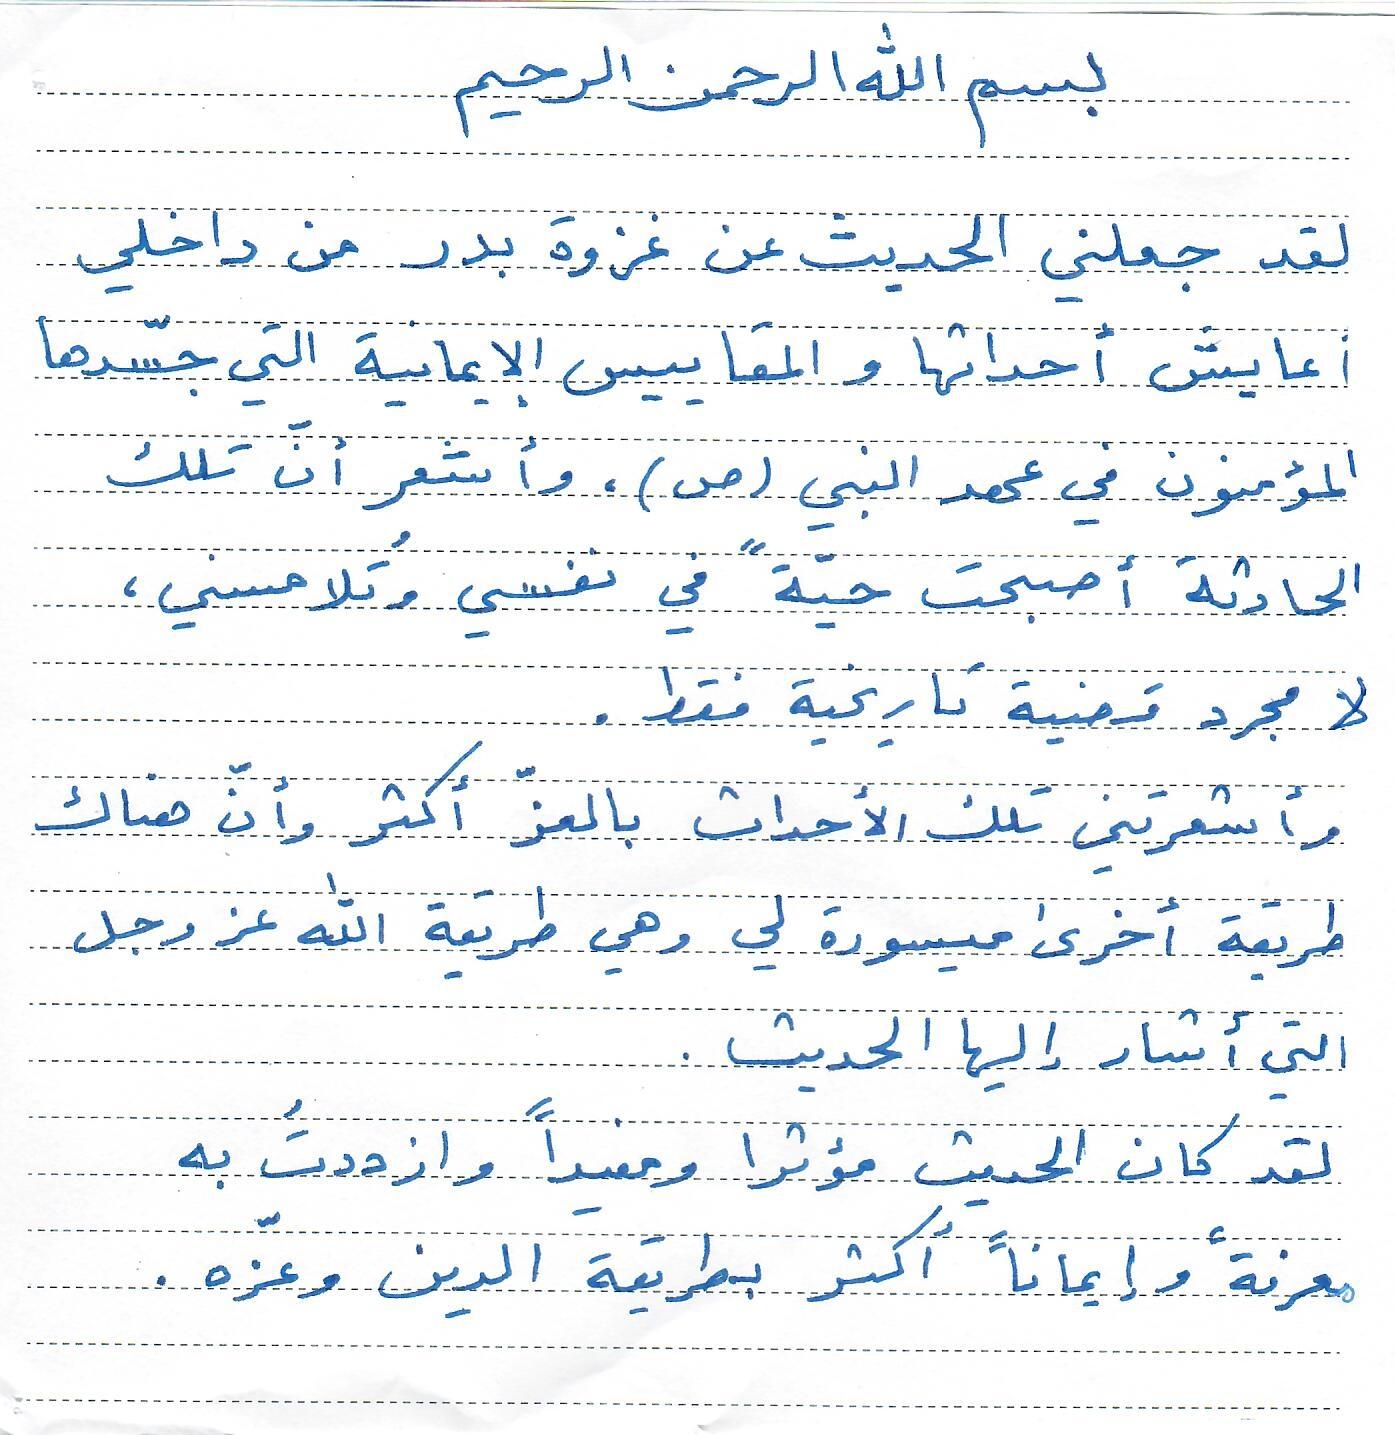 بسم الله الرحمن الرحيم
لقد جعلني الحديث عن غزوة بدر من داخلي
أعايش أحداثها و المقاييس الإيمانية التي جسّدها
المؤمنون في عهد النبي (ص)، وأشعر أنّ تلك
الحادثة أصبحت حيّةً في نفسي وتُلامسني،
لا مجرد قضية تاريخية فقط.
وأشعرتني تلك الأحداث بالعزّ أكثر وأنّ هناك
طريقة أخرى ميسورة لي وهي طريقة الله عز وجل
التي أشار إليها الحديث.
لقد كان الحديث مؤثرا ومفيداً وازددتُ به
معرفةً وإيماناً أكثر بطريقة الدين وعزّه.